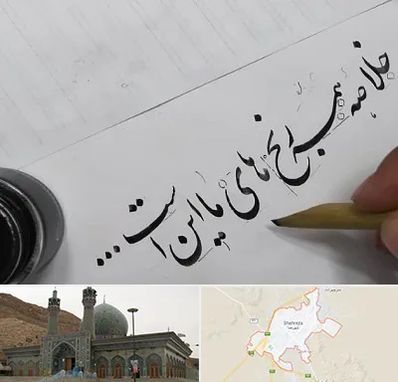 خلاصه همه رنج های ما این است...
Shahreza
شهرضا